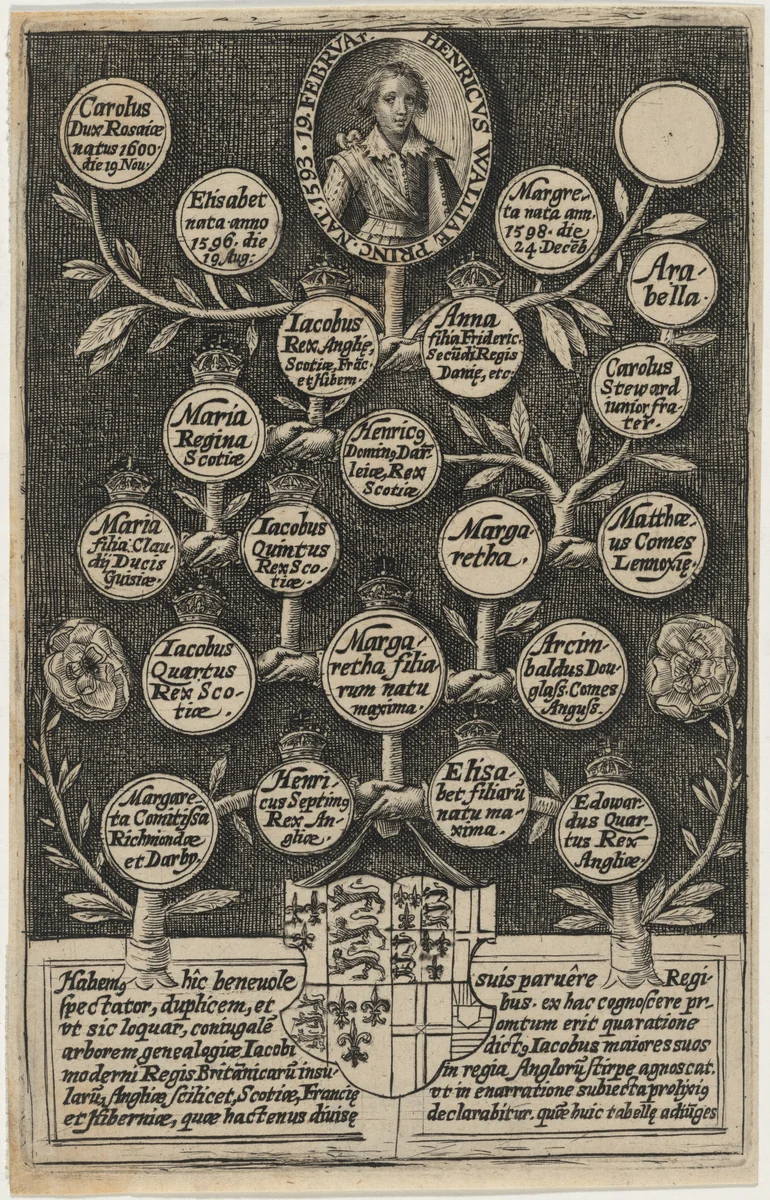 HENRICVS WALLIAE PRINC · NAT · 1593 · 19 · FEBRVAr
Carolus
Dux Rosaiæ
natus 1600·
die 19 Nou·
Elisabet
nata·anno
1596· die
19 Aug:
Margre-
ta nata ann.
1598· die
24· Decēb
Ara-
bella·
Iacobus
Rex Anglię,
Scotiæ, Frāc
et Hibern·
Anna
filia Frideric·
Secūdi Regis
Danię, etc·
Carolus
Steward
iunior fra-
ter.
Maria
Regina
Scotiæ
Henricꝰ
Dominꝰ Dar-
leiæ, Rex
Scotiæ
Maria
filia·Clau-
dij Ducis
Guisiæ·
Iacobus
Quintus
Rex Sco-
tiæ·
Marga-
retha·
Matthæ-
us Comes
Lennoxię·
Iacobus
Quartus
Rex Sco-
tiæ·
Marga-
retha filia-
rum natu
maxima·
Arcim-
baldus Dou-
glass·Comes
Anguss·
Margare-
ta Comitissa
Richmondæ
et Darby·
Henri-
cus Septimꝰ
Rex An-
gliæ·
Elisa-
bet filiarū
natu ma-
xima·
Edowar-
dus Quar-
tus Rex
Angliæ·
Habemꝰ hîc beneuole
spectator, duplicem, et
vt sic loquar, coniugalē
arborem genealogiæ Iacobi
moderni Regis Britānicarū insu-
larū, Angliæ scilicet, Scotiæ, Francię
et Hiberniæ, quæ hactenus diuisę
suis paruêre Regi-
bus· ex hac cognoscere pr-
omtum erit qua ratione
dictꝰ Iacobus maiores suos
in regia Anglorū stirpe agnoscat·
vt in enarratione subiecta prolixiꝰ
declarabitur· quā huic tabellę adiūges